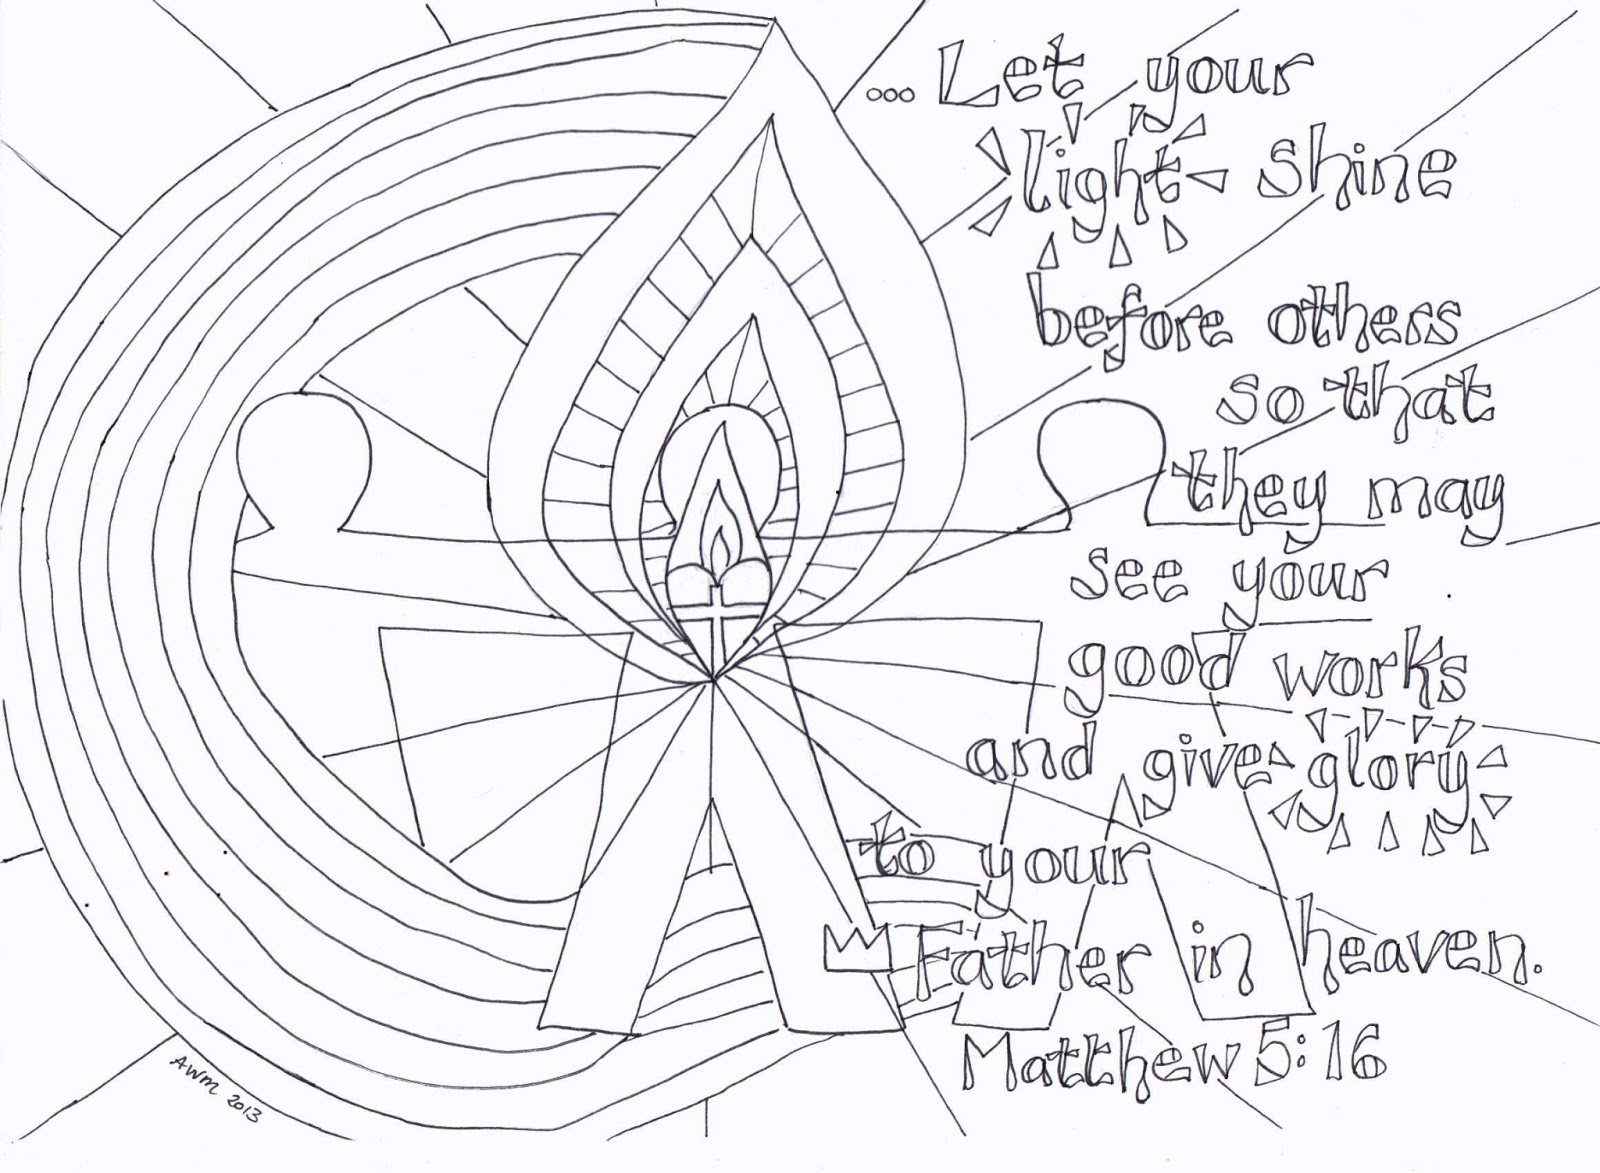 ...Let your
light shine
before others
so that
they may
see your
good works
and give glory
to your
Father in heaven.
Matthew 5:16
AWM 2013